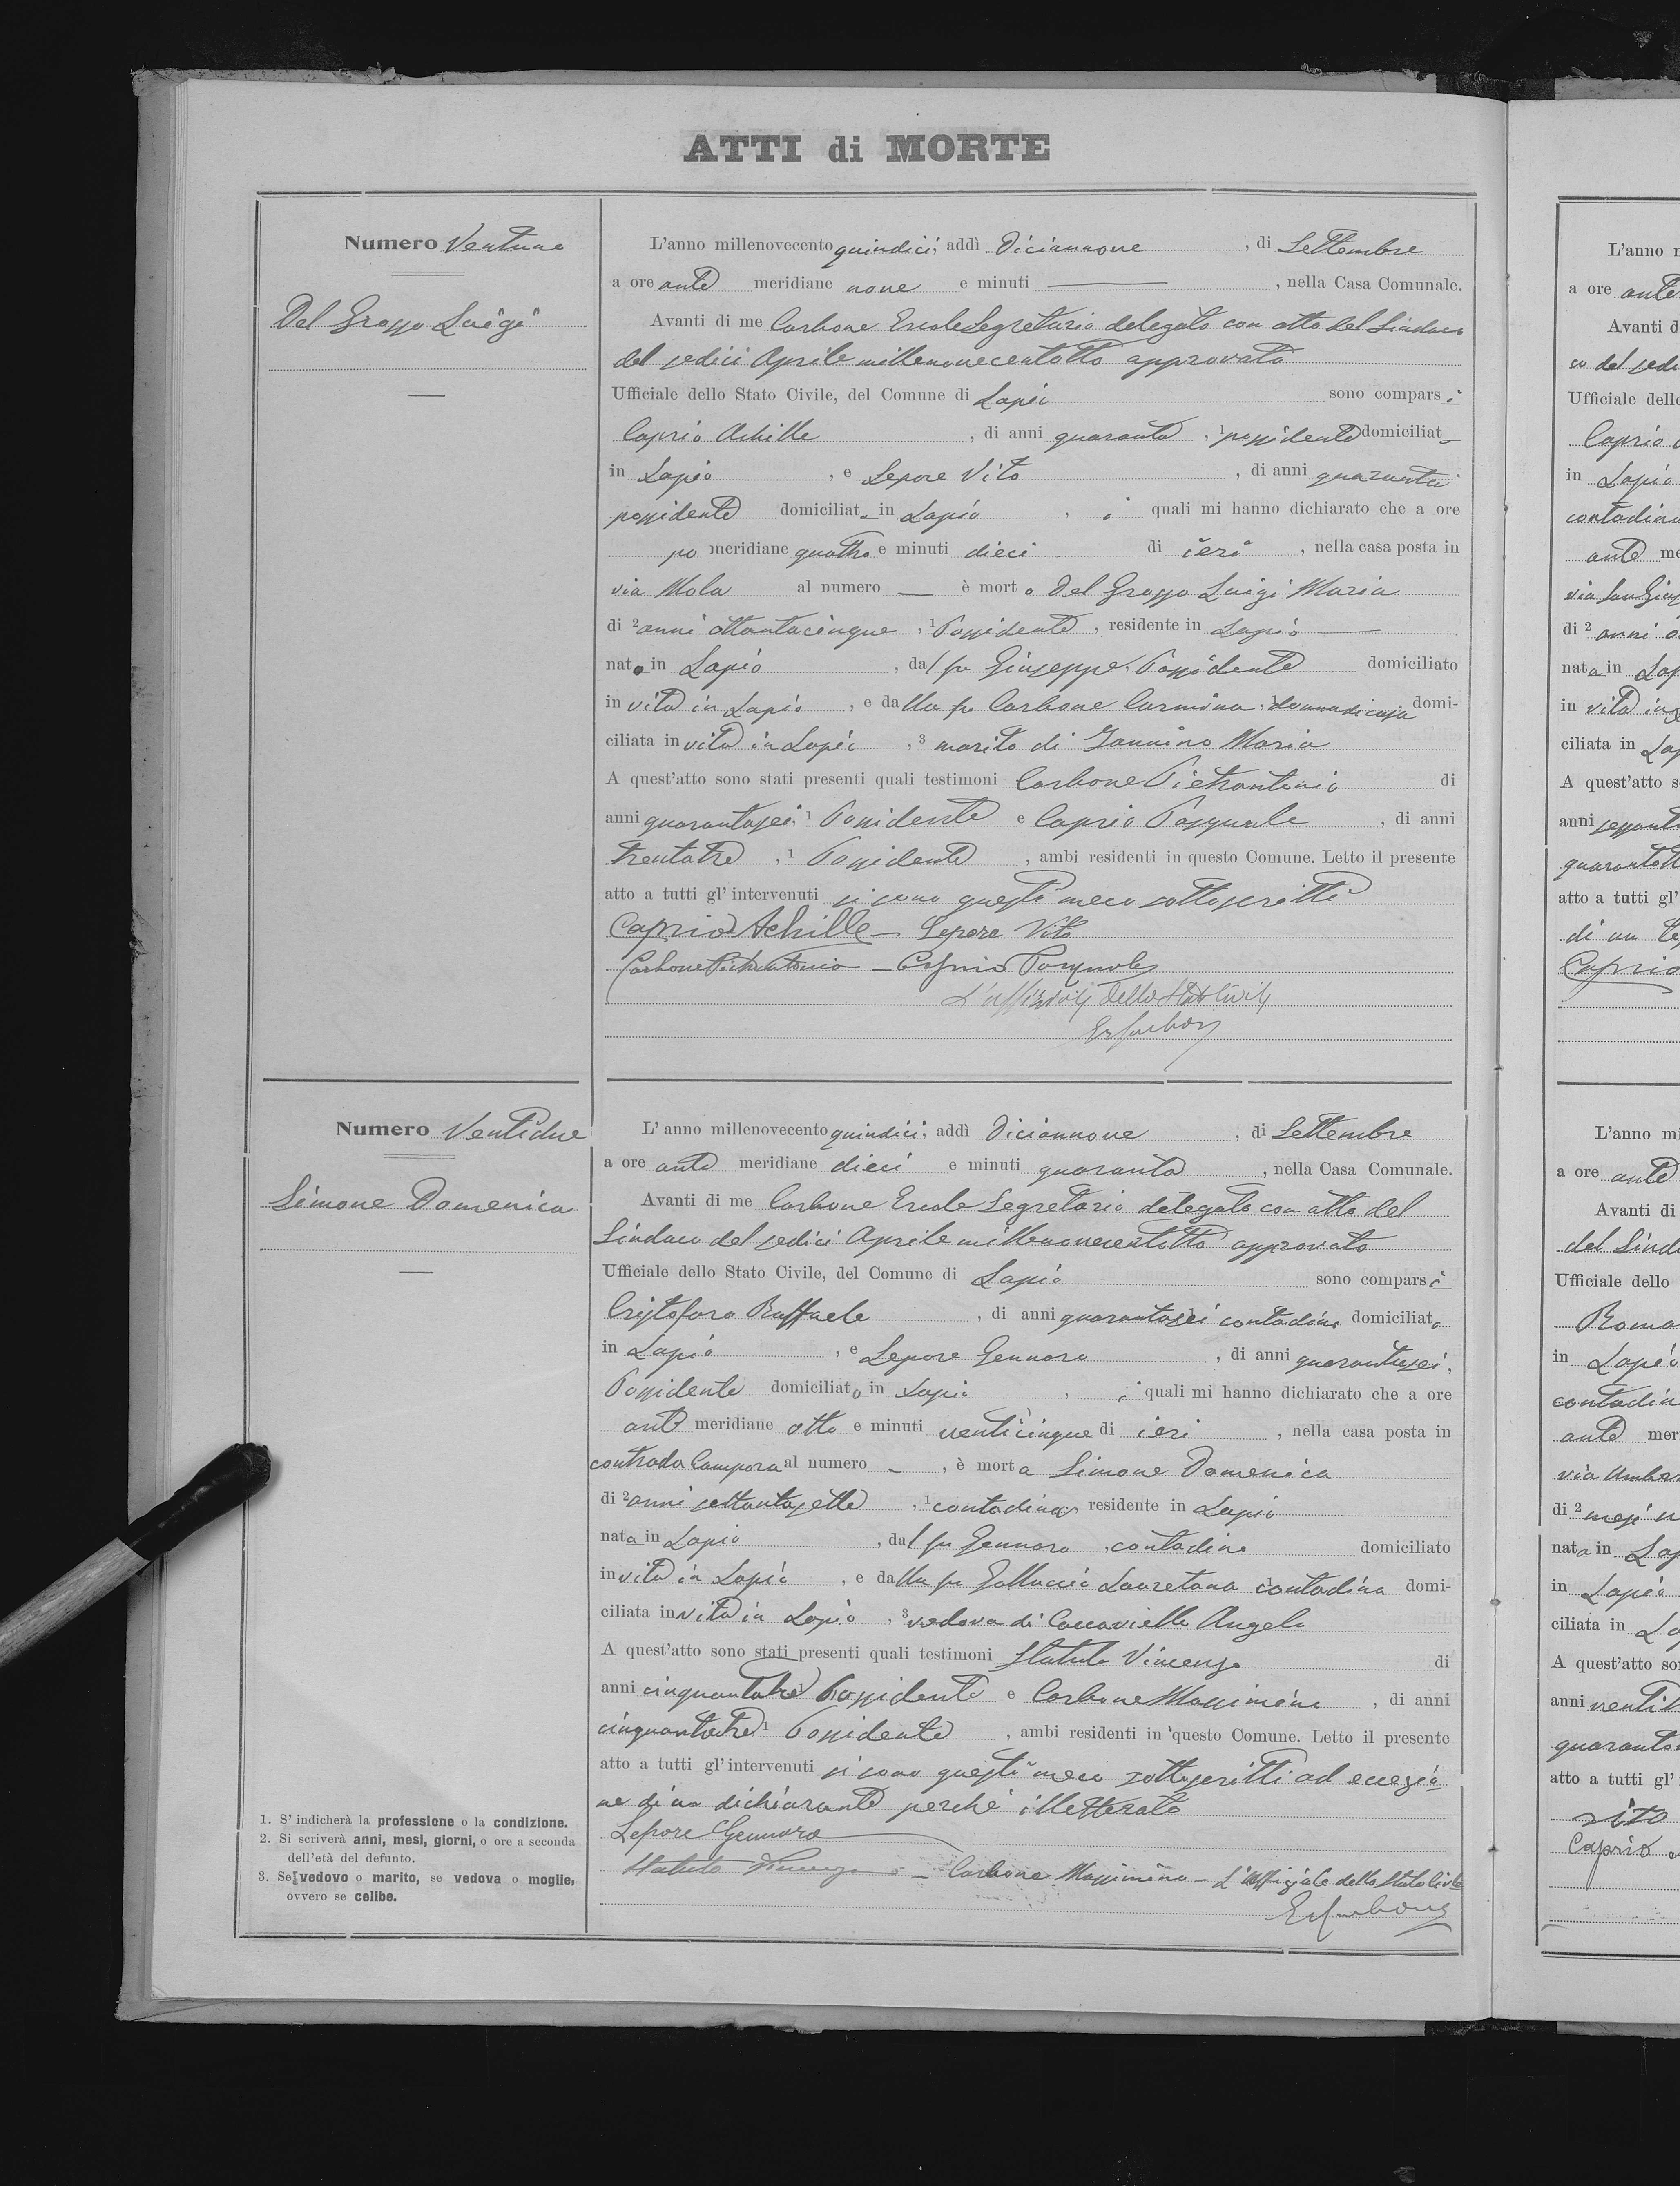 ATTI di MORTE
Numero Ventuno
Del Grosso Luigi
L'anno millenovecento quindici, addì Diciannove, di Settembre
a ore ante meridiane nove e minuti —, nella Casa Comunale.
Avanti di me Carbone Ercole Segretario delegato con atto del Sindaco
del sedici Aprile millenovecentotto approvato
Ufficiale dello Stato Civile, del Comune di Lapio sono comparsi
Caprio Achille, di anni quaranta, 1 possidente domiciliato
in Lapio, e Lepore Vito, di anni quaranta
possidente domiciliato in Lapio, i quali mi hanno dichiarato che a ore
po meridiane quattro e minuti dieci di ieri, nella casa posta in
via Mola al numero — è morto Del Grosso Luigi Maria
di 2 anni ottantacinque, 1 Possidente, residente in Lapio —
nato in Lapio, dal fu Giuseppe, Possidente domiciliato
in vita in Lapio, e dalla fu Carbone Carmina, donna di casa domi-
ciliata in vita in Lapio, 3 marito di Iannino Maria
A quest'atto sono stati presenti quali testimoni Carbone Pietrantonio di
anni quarantasei, 1 Possidente e Caprio Pasquale, di anni
trentatre, 1 Possidente, ambi residenti in questo Comune. Letto il presente
atto a tutti gl'intervenuti si sono questi meco sottoscritti
Caprio Achille — Lepore Vito
Carbone Pietrantonio — Caprio Pasquale
L'uffiziale dello Stato Civile
E. Carbone
Numero Ventidue
Simone Domenica
L'anno millenovecento quindici, addì Diciannove, di Settembre
a ore ante meridiane dieci e minuti quaranta, nella Casa Comunale.
Avanti di me Carbone Ercole Segretario delegato con atto del
Sindaco del sedici Aprile millenovecentotto approvato
Ufficiale dello Stato Civile, del Comune di Lapio sono comparsi
Cristofaro Raffaele, di anni quarantasei contadino domiciliato
in Lapio, e Lepore Gennaro, di anni quarantasei,
Possidente domiciliato in Lapio, i quali mi hanno dichiarato che a ore
ante meridiane otto e minuti venticinque di ieri, nella casa posta in
contrada Campora al numero —, è morta Simone Domenica
di 2 anni settantasette, 1 contadina, residente in Lapio
nata in Lapio, dal fu Gennaro, contadino domiciliato
in vita in Lapio, e dalla fu Galluccio Lauretana contadina domi-
ciliata in vita in Lapio, 3 vedova di Caccavielle Angelo
A quest'atto sono stati presenti quali testimoni Statuto Vincenzo di
anni cinquantatre Possidente e Carbone Massimino, di anni
cinquantatre 1 Possidente, ambi residenti in questo Comune. Letto il presente
atto a tutti gl'intervenuti si sono questi meco sottoscritti ad eccezio
ne di un dichiarante perchè illetterato
Lepore Gennaro
Statuto Vincenzo — Carbone Massimino — L'Uffiziale dello Stato Civile
E. Carbone
1. S'indicherà la professione o la condizione.
2. Si scriverà anni, mesi, giorni, o ore a seconda
dell'età del defunto.
3. Se vedovo o marito, se vedova o moglie,
ovvero se celibe.